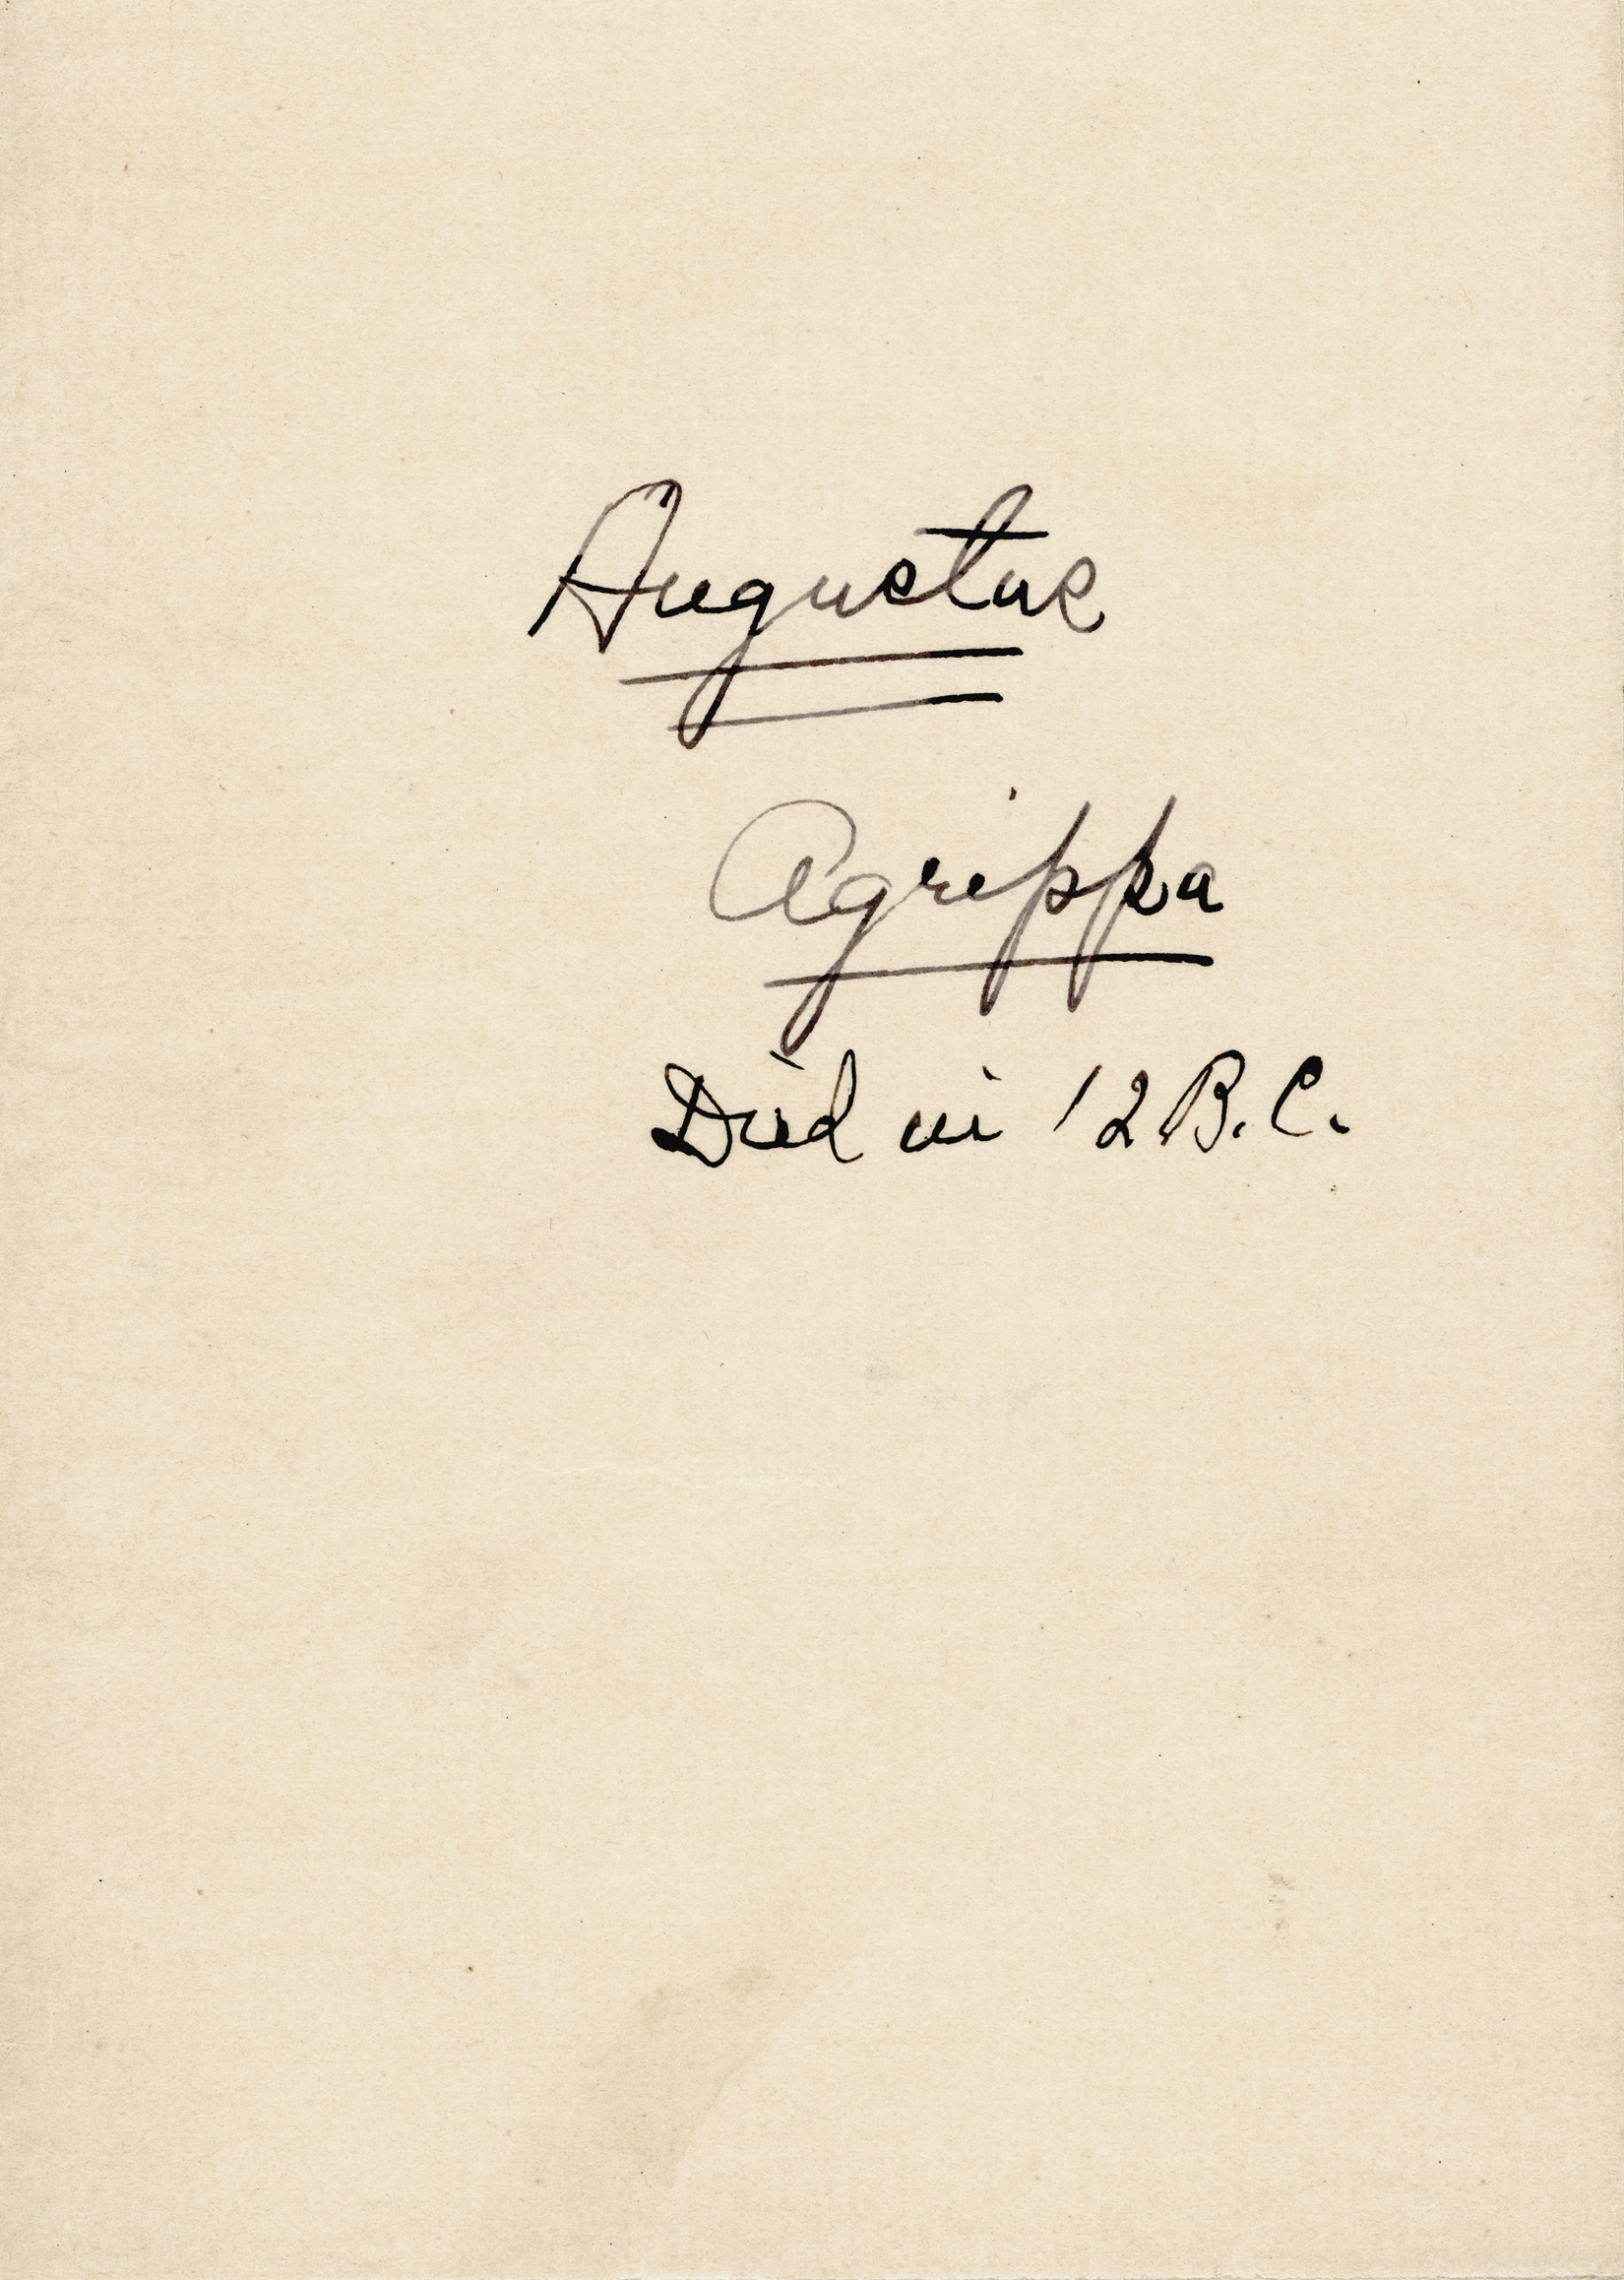 Augustus
Agrippa
Died in 12 B.C.